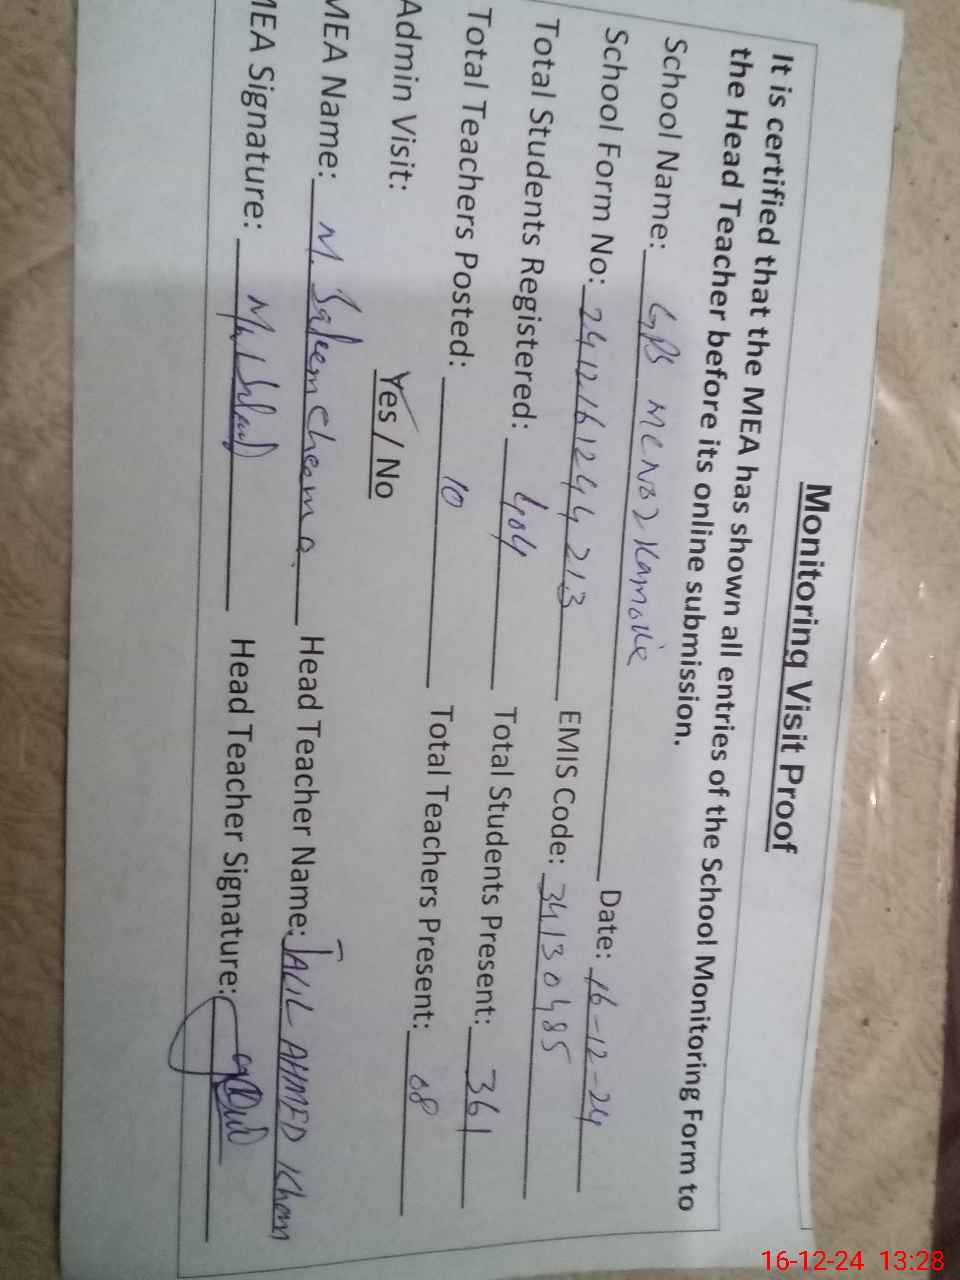 Monitoring Visit Proof
It is certified that the MEA has shown all entries of the School Monitoring Form to
the Head Teacher before its online submission.
School Name: GPS MC NO 2 Kamokie Date: 16-12-24
School Form No: 2412161244213 EMIS Code: 34130485
Total Students Registered: 404 Total Students Present: 361
Total Teachers Posted: 10 Total Teachers Present: 08
Admin Visit: Yes / No
MEA Name: M. Saleem Cheema Head Teacher Name: JALIL AHMED Khan
MEA Signature: Head Teacher Signature:
16-12-24 13:28